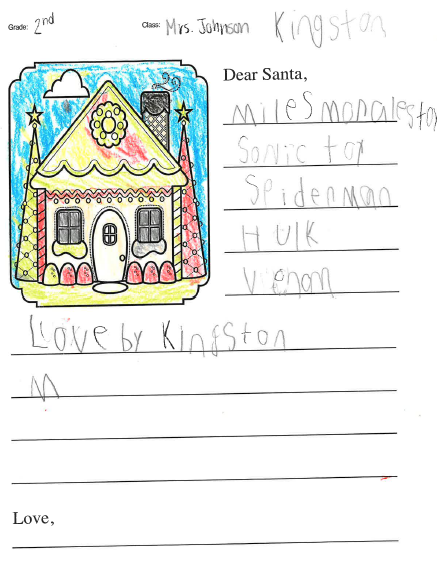 Grade: 2nd Class: Mrs. Johnson Kingston
Dear Santa,
Miles monales toy
Sonic toy
Spiderman
HUlK
Venom
Love by Kingston
M
Love,